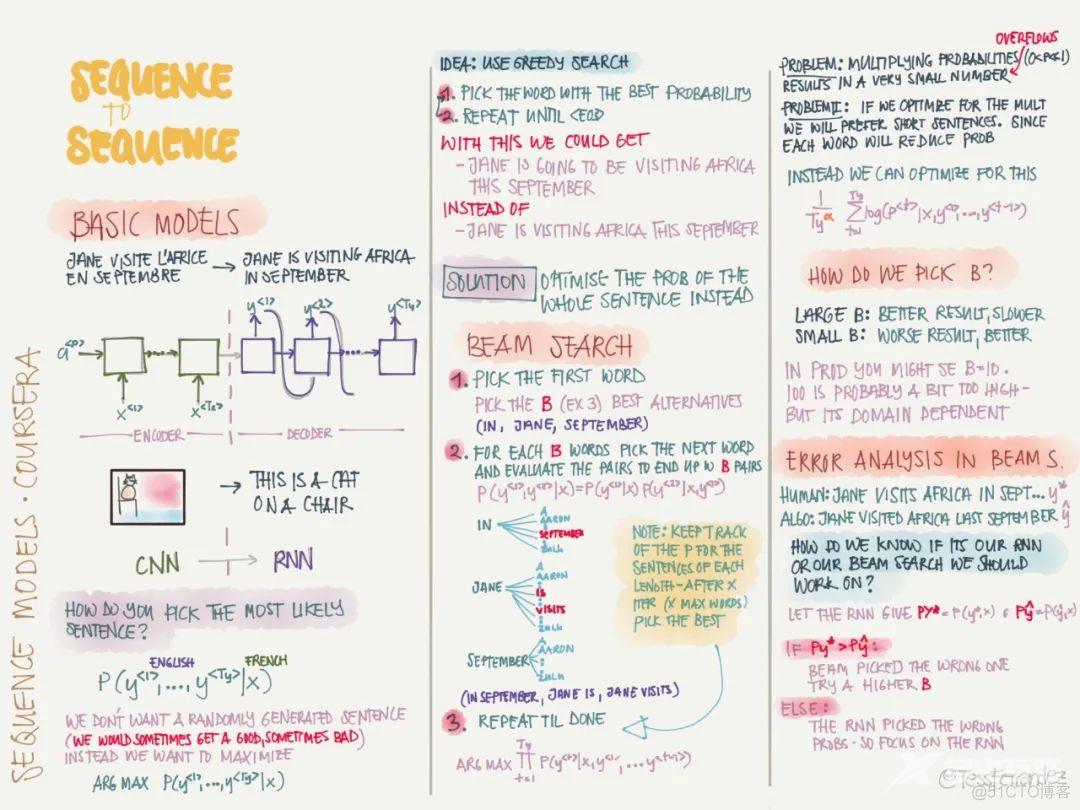 SEQUENCE MODELS · COURSERA
SEQUENCE
TO
SEQUENCE
BASIC MODELS
JANE VISITE L'AFRICE
EN SEPTEMBRE
→ JANE IS VISITING AFRICA
IN SEPTEMBER
y<1> y<2> y<Ty>
a<0>
x<1> x<Tx>
ENCODER DECODER
→ THIS IS A CAT
ON A CHAIR
CNN → RNN
HOW DO YOU PICK THE MOST LIKELY
SENTENCE?
ENGLISH FRENCH
P(y<1>,...,y<Ty>|x)
WE DON'T WANT A RANDOMLY GENERATED SENTENCE
(WE WOULD SOMETIMES GET A GOOD, SOMETIMES BAD)
INSTEAD WE WANT TO MAXIMIZE
ARG MAX P(y<1>,...,y<Ty>|x)
IDEA: USE GREEDY SEARCH
1. PICK THE WORD WITH THE BEST PROBABILITY
2. REPEAT UNTIL <EOS>
WITH THIS WE COULD GET
- JANE IS GOING TO BE VISITING AFRICA
THIS SEPTEMBER
INSTEAD OF
- JANE IS VISITING AFRICA THIS SEPTEMBER
SOLUTION OPTIMISE THE PROB OF THE
WHOLE SENTENCE INSTEAD
BEAM SEARCH
1. PICK THE FIRST WORD
PICK THE B (EX 3) BEST ALTERNATIVES
(IN, JANE, SEPTEMBER)
2. FOR EACH B WORDS PICK THE NEXT WORD
AND EVALUATE THE PAIRS TO END UP W B PAIRS
P(y<1>,y<2>|x)=P(y<1>|x) P(y<2>|x,y<1>)
A
AARON
IN SEPTEMBER
ZULU
A
AARON
JANE IS
VISITS
ZULU
A
AARON
SEPTEMBER
ZULU
NOTE: KEEP TRACK
OF THE P FOR THE
SENTENCES OF EACH
LENGTH - AFTER X
ITER (X MAX WORDS)
PICK THE BEST
(IN SEPTEMBER, JANE IS, JANE VISITS)
3. REPEAT TIL DONE
ARG MAX ∏ Ty t=1 P(y<t>|x,y<1>,...y<t-1>)
OVERFLOWS
PROBLEM: MULTIPLYING PROBABILITIES (0<P≪1)
RESULTS IN A VERY SMALL NUMBER
PROBLEM II: IF WE OPTIMIZE FOR THE MULT
WE WILL PREFER SHORT SENTENCES. SINCE
EACH WORD WILL REDUCE PROB
INSTEAD WE CAN OPTIMIZE FOR THIS
1/Ty^α ∑ Ty t=1 log(P<t>|x,y<1>,...,y<t-1>)
HOW DO WE PICK B?
LARGE B: BETTER RESULT, SLOWER
SMALL B: WORSE RESULT, BETTER
IN PROD YOU MIGHT SE B=10.
100 IS PROBABLY A BIT TOO HIGH -
BUT ITS DOMAIN DEPENDENT
ERROR ANALYSIS IN BEAM S.
HUMAN: JANE VISITS AFRICA IN SEPT... y*
ALGO: JANE VISITED AFRICA LAST SEPTEMBER ŷ
HOW DO WE KNOW IF ITS OUR RNN
OR OUR BEAM SEARCH WE SHOULD
WORK ON?
LET THE RNN GIVE Py*=P(y*,x) & Pŷ=P(ŷ,x)
IF Py*>Pŷ:
BEAM PICKED THE WRONG ONE
TRY A HIGHER B
ELSE:
THE RNN PICKED THE WRONG
PROBS - SO FOCUS ON THE RNN
@Tessferrandez
@51CTO博客